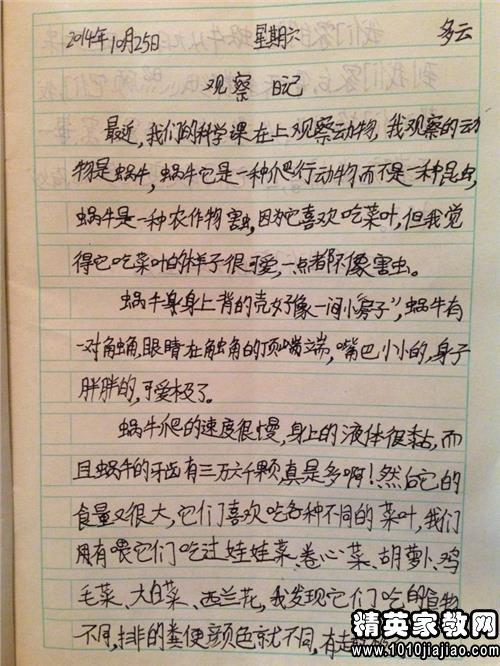 2014年10月25日 星期六 多云
观察 日记
最近,我们的科学课在上观察动物,我观察的动
物是蜗牛,蜗牛它是一种爬行动物而不是一种昆虫,
蜗牛是一种农作物害虫,因为它喜欢吃菜叶,但我觉
得它吃菜叶的样子很可爱,一点都不像害虫。
蜗牛身身上背的壳好像一间“小房子”,蜗牛有
一对角触,眼睛在触角的顶端,嘴巴小小的,身子
胖胖的,可爱极了。
蜗牛爬的速度很慢,身上的液体很黏,而
且蜗牛的牙齿有三万六千颗,真是多啊!然后它的
食量又很大,它们喜欢吃各种不同的菜叶,我们
用有喂它们吃过娃娃菜、卷心菜、胡萝卜、鸡
毛菜、大白菜、西兰花,我发现它们吃的植物
不同,排的粪便颜色就不同,有
精英家教网
www.1010jiajiao.com